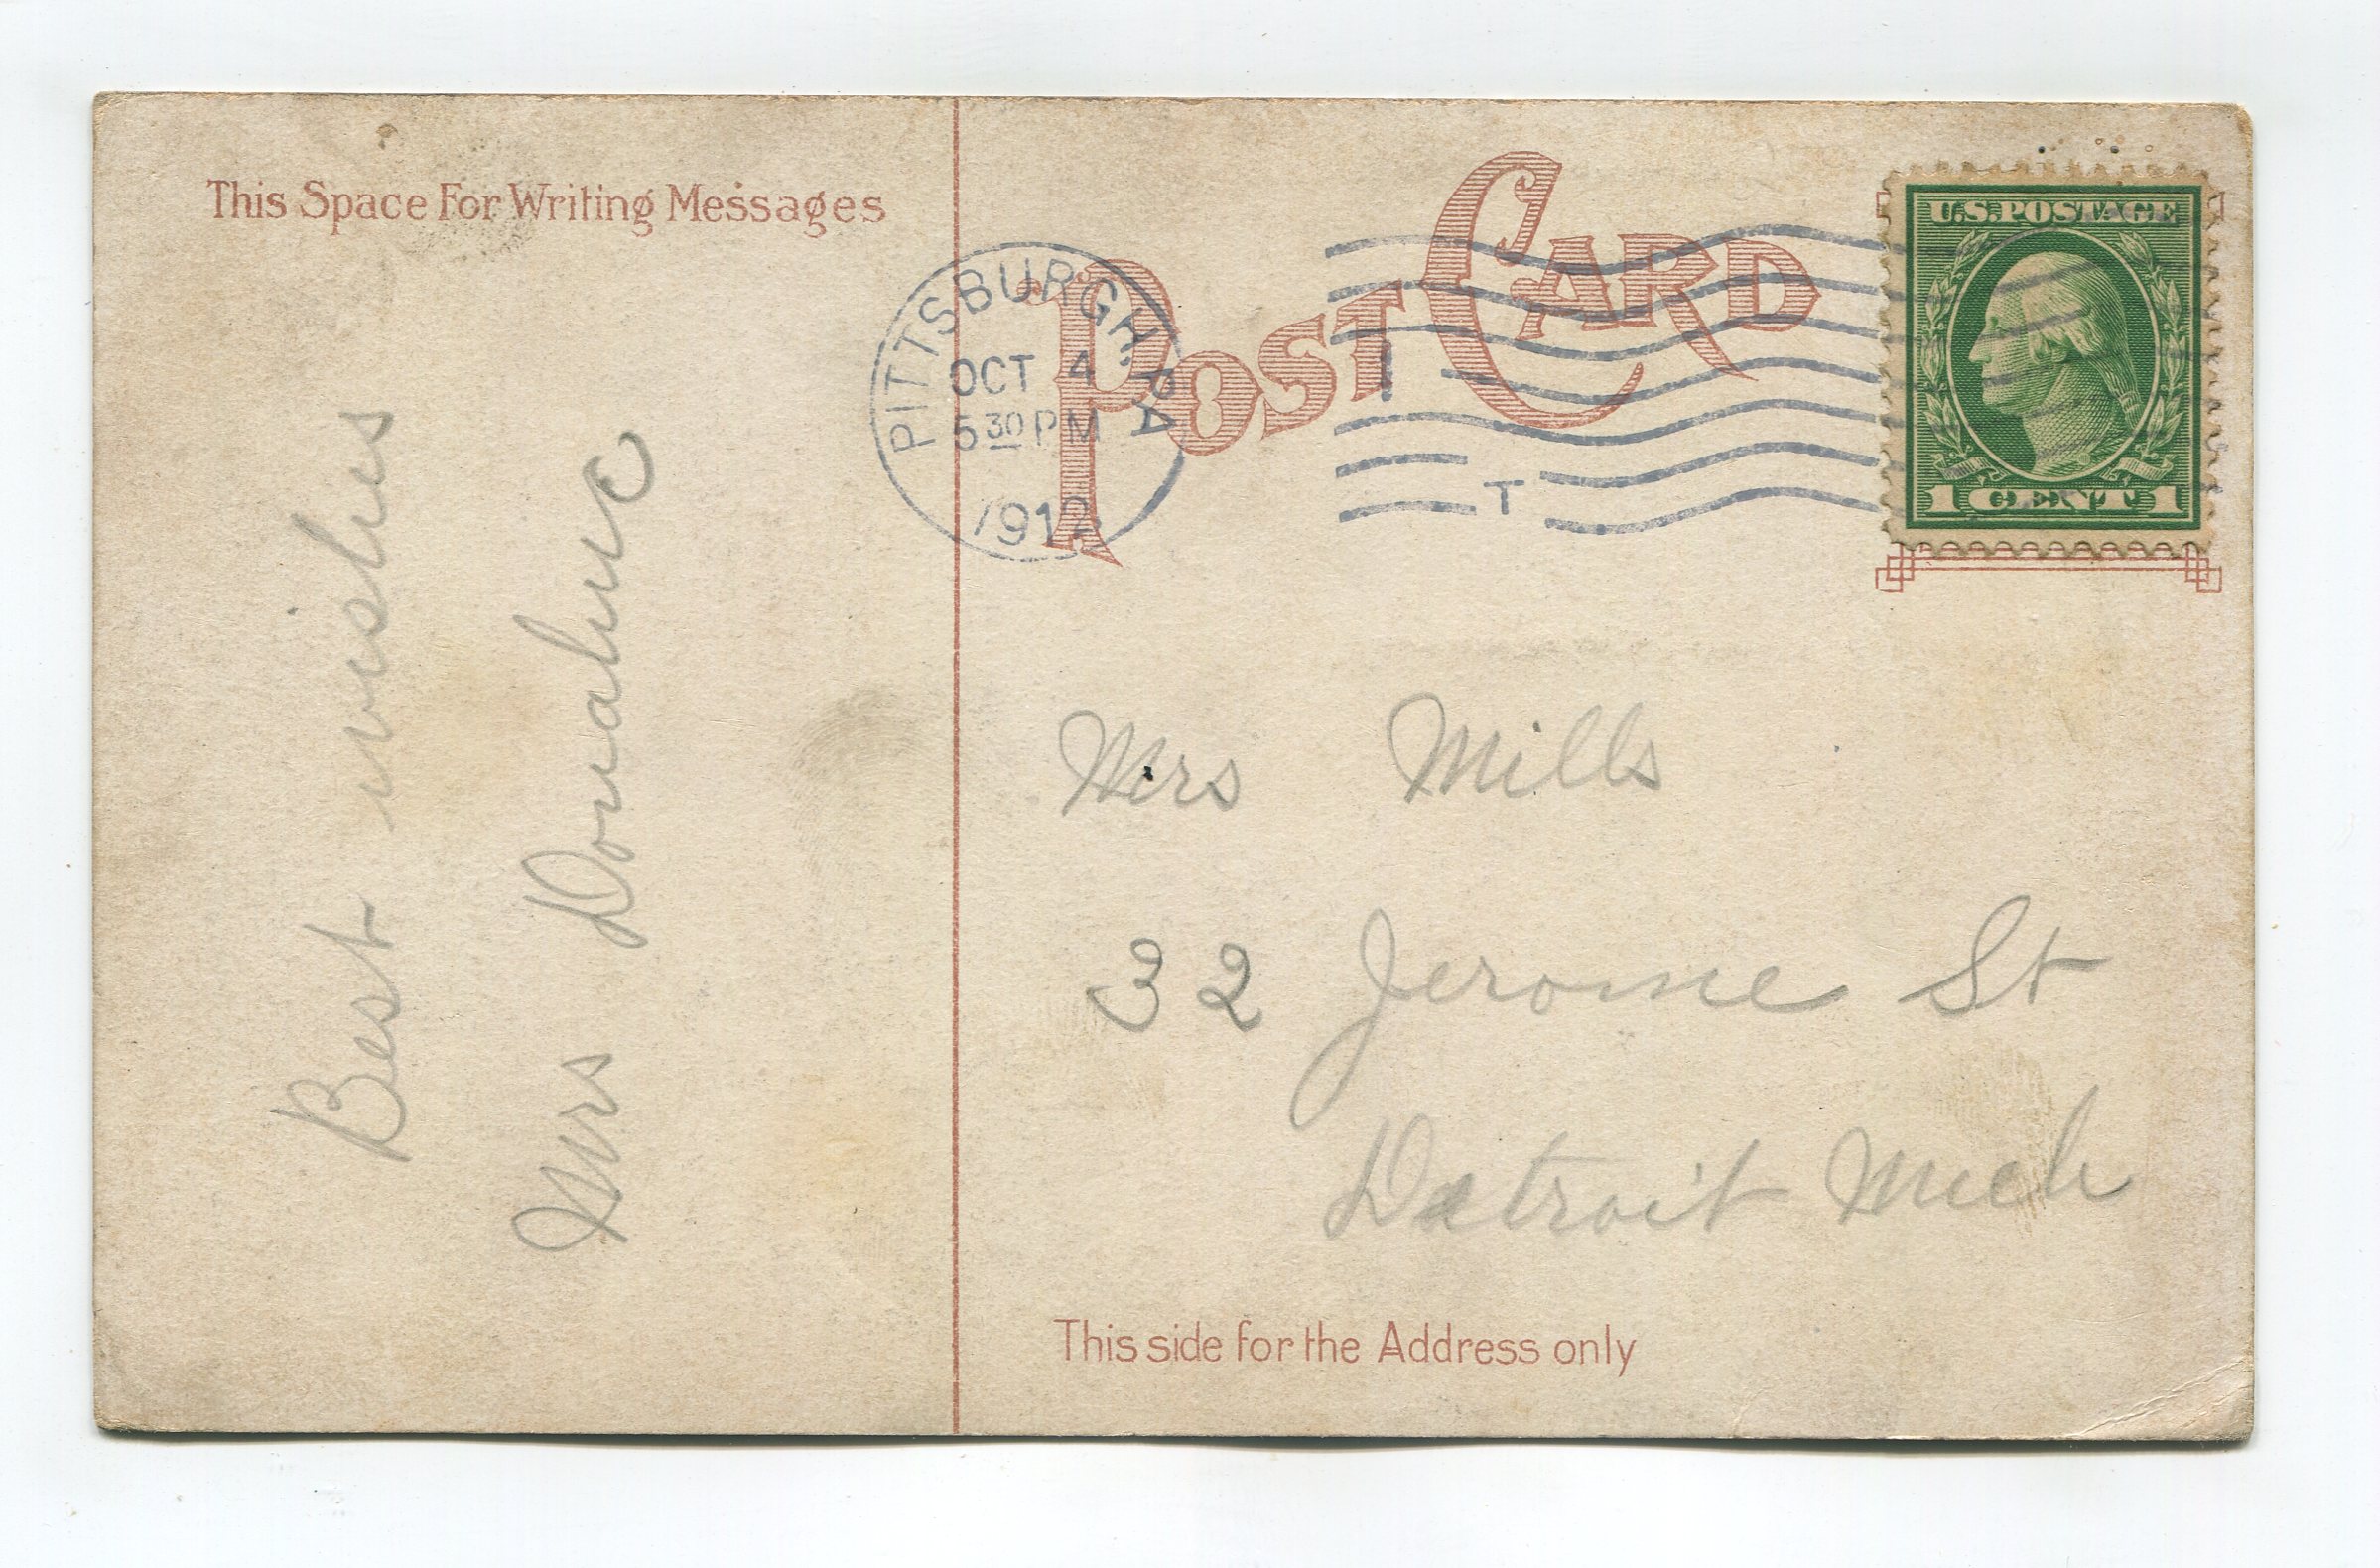 This Space For Writing Messages
POST CARD
PITTSBURGH, PA
OCT 4
5 30 PM
1912
1
T
U.S. POSTAGE
1 CENT 1
Best wishes
Mrs Donahue
Mrs Mills
32 Jerome St
Detroit Mich
This side for the Address only